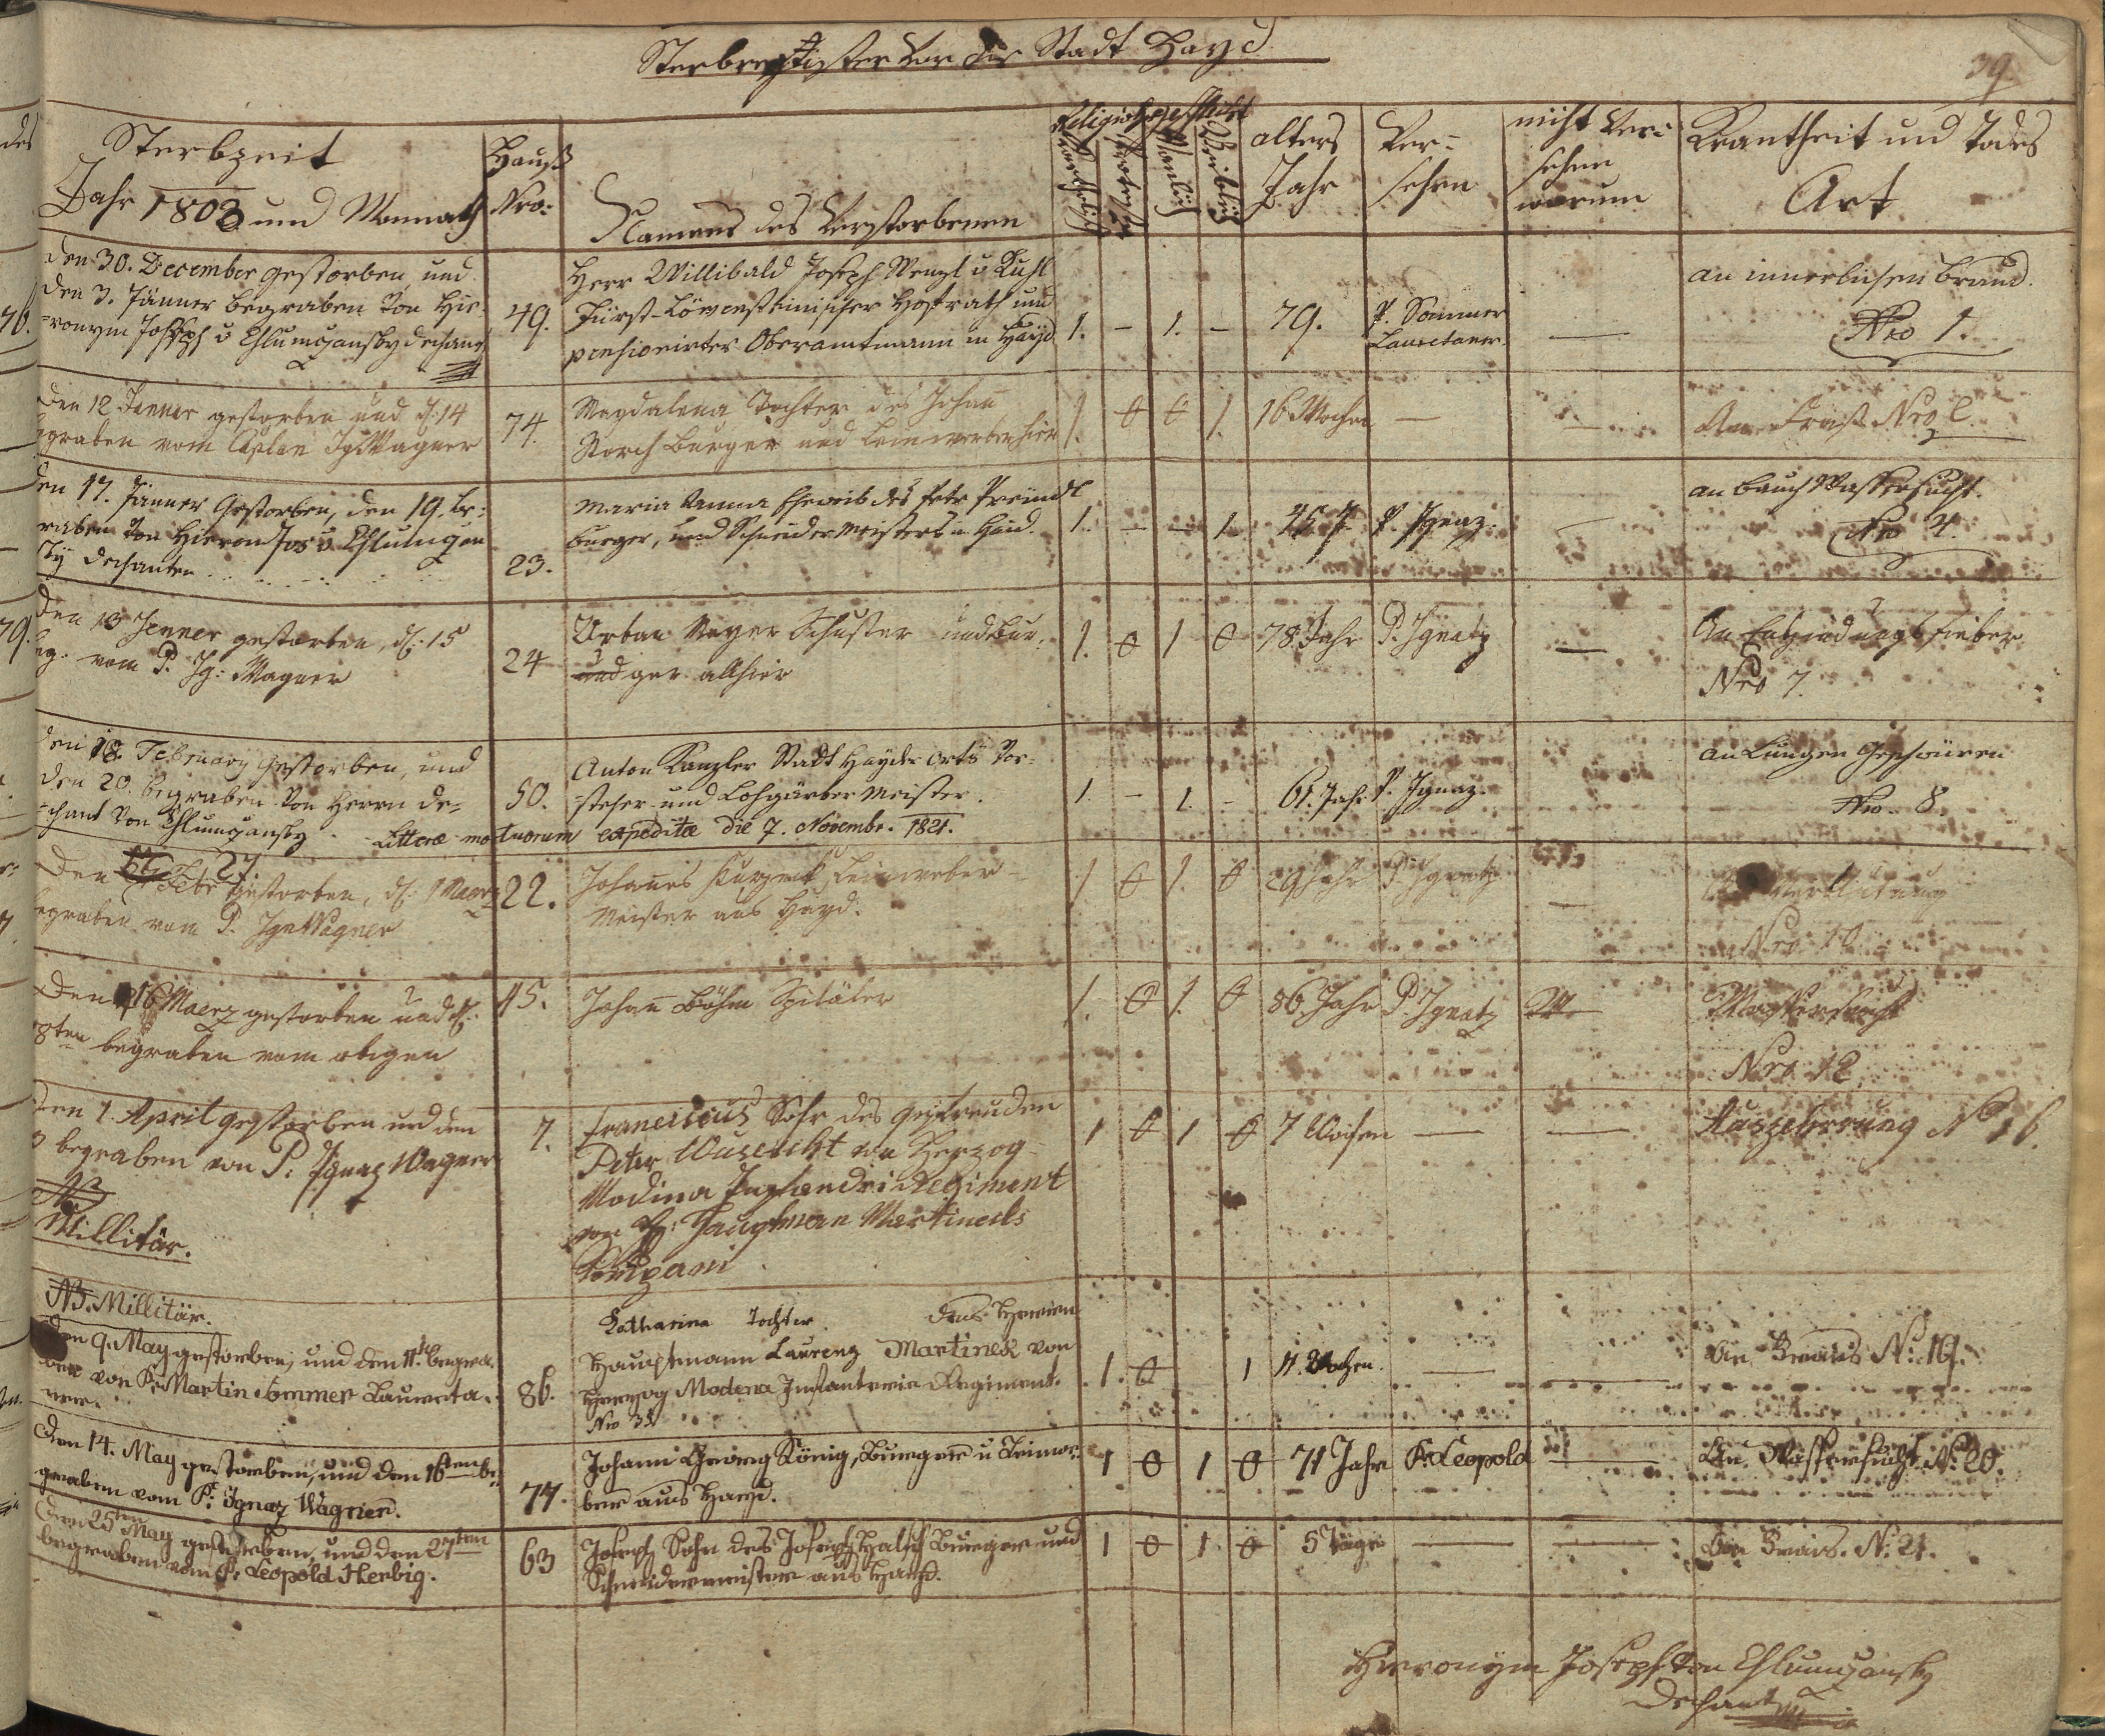 Sterbregister von der Stadt Hayd
39
Sterbzeit
Jahr 1803 und Monnath
Hauß
Nro:
Namens des Verstorbenen
Religion
Geschlecht
Katholisch
Protest
Mänlich
Weiblich
alters
Jahr
Ver-
sehen
nicht Ver-
sehen
warum
Krankheit und Todes
Art
den 30. December gestorben, und
den 3. Jänner begraben von Hie-
ronym Joseph v Chlumczansky Dechant
49.
Herr Willibald Joseph Wenzl v Kuhl
Fürst-Löwensteinischer Hofrath und
pensionirter Oberamtmann in Hayd
1. – 1. –
79.
P. Sommer
Lauretaner.
—
an innerlichen Brand.
Nro 1.
Den 12 Jenner gestorben und d: 14
graben vom Caplan Ig Wagner
74.
Magdalena Tochter des Johan
Storch Burger und Leinweber hier
1. 0 0 1.
16 Wochen
—
—
Am Frais Nro 2.
den 17. Jänner Gestorben, den 19. be-
raben von Hieron Jos v Chlumczan
sky Dechanten
23.
Maria Anna Eheweib des Petr Preindl
burger, und Schneider Meisters in Haid.
1. – – 1
45 J.
P. Ignaz.
an bauch Wassersucht.
Nro 4.
Den 13 Jenner gestorben, d: 15
eg. vom P. Ig: Wagner
24
Urban Mayer Schuster und Bur-
und ger allhier
1. 0 1 0
78. Jahr
P. Ignatz
—
An Entzündungsfieber
Nro 7.
den 18. February gestorben, und
den 20. begraben von Herrn De-
chant von Chlumczansky.
50.
Anton Kanzler Stadt Hayder Orts Vor-
steher und Lohgärber Meister.
Litteræ mortuorum expeditæ die 7. Novembr. 1821.
1. – 1. –
61. Jahr
P. Ignaz.
an Lungen Geschwüren
Nro. 8.
Den 27. Febr gestorben, d: 1 Maerz
egraben vom P. Ign Wagner
22.
Johanes Leinweber
Meister aus Hayd.
1 0 1. 0
29 Jahr
P. Ignatz
—
Nro 10
Den 16 Maerz gestorben und d:
18ten begraben vom obigen
45.
Johan Böhm Spitäler
1. 0 1. 0
86. Jahr
P. Ignatz
Wassersucht
Nro 12
Den 1. April gestorben und den
3 begraben von P. Ignaz Wagner
NB
Millitär.
7.
Franciscus Sohn des Gefreuden
Peter von Herzog
Modina Infanderi Regiment
von H: Hauptman Martinecks
Compani
1 0 1 0
7 Wochen
—
—
Auszehrung No 16.
NB. Millitär.
Den 9. May gestorben, und den 11ten begra-
ben von P. Martin Sommer Laureta-
ner.
86.
Katharina Tochter des Herren
Hauptmann Laurenz Martinek von
Herzog Modena Infanterie Regiment.
Nro 35
1. 0 1
11. Wochen.
—
—
An Frais No. 19.
Den 14. May gestorben, und den 16ten be-
graben vom P. Ignaz Wagner.
77.
Johann Georg König, Burger u Leinwe-
ber aus Hayd.
1 0 1 0
71 Jahr
P. Leopold
—
An Wassersucht. No. 20.
Den 25ten May gestorben, und den 27ten
begraben vom P. Leopold Herbig.
63
Joseph Sohn des Joseph Hasch Burger und
Schneidermeister aus Hayd.
1 0 1. 0
5 Täge
—
—
An Frais. No. 21.
Hieronym Joseph von Chlumczansky
Dechant